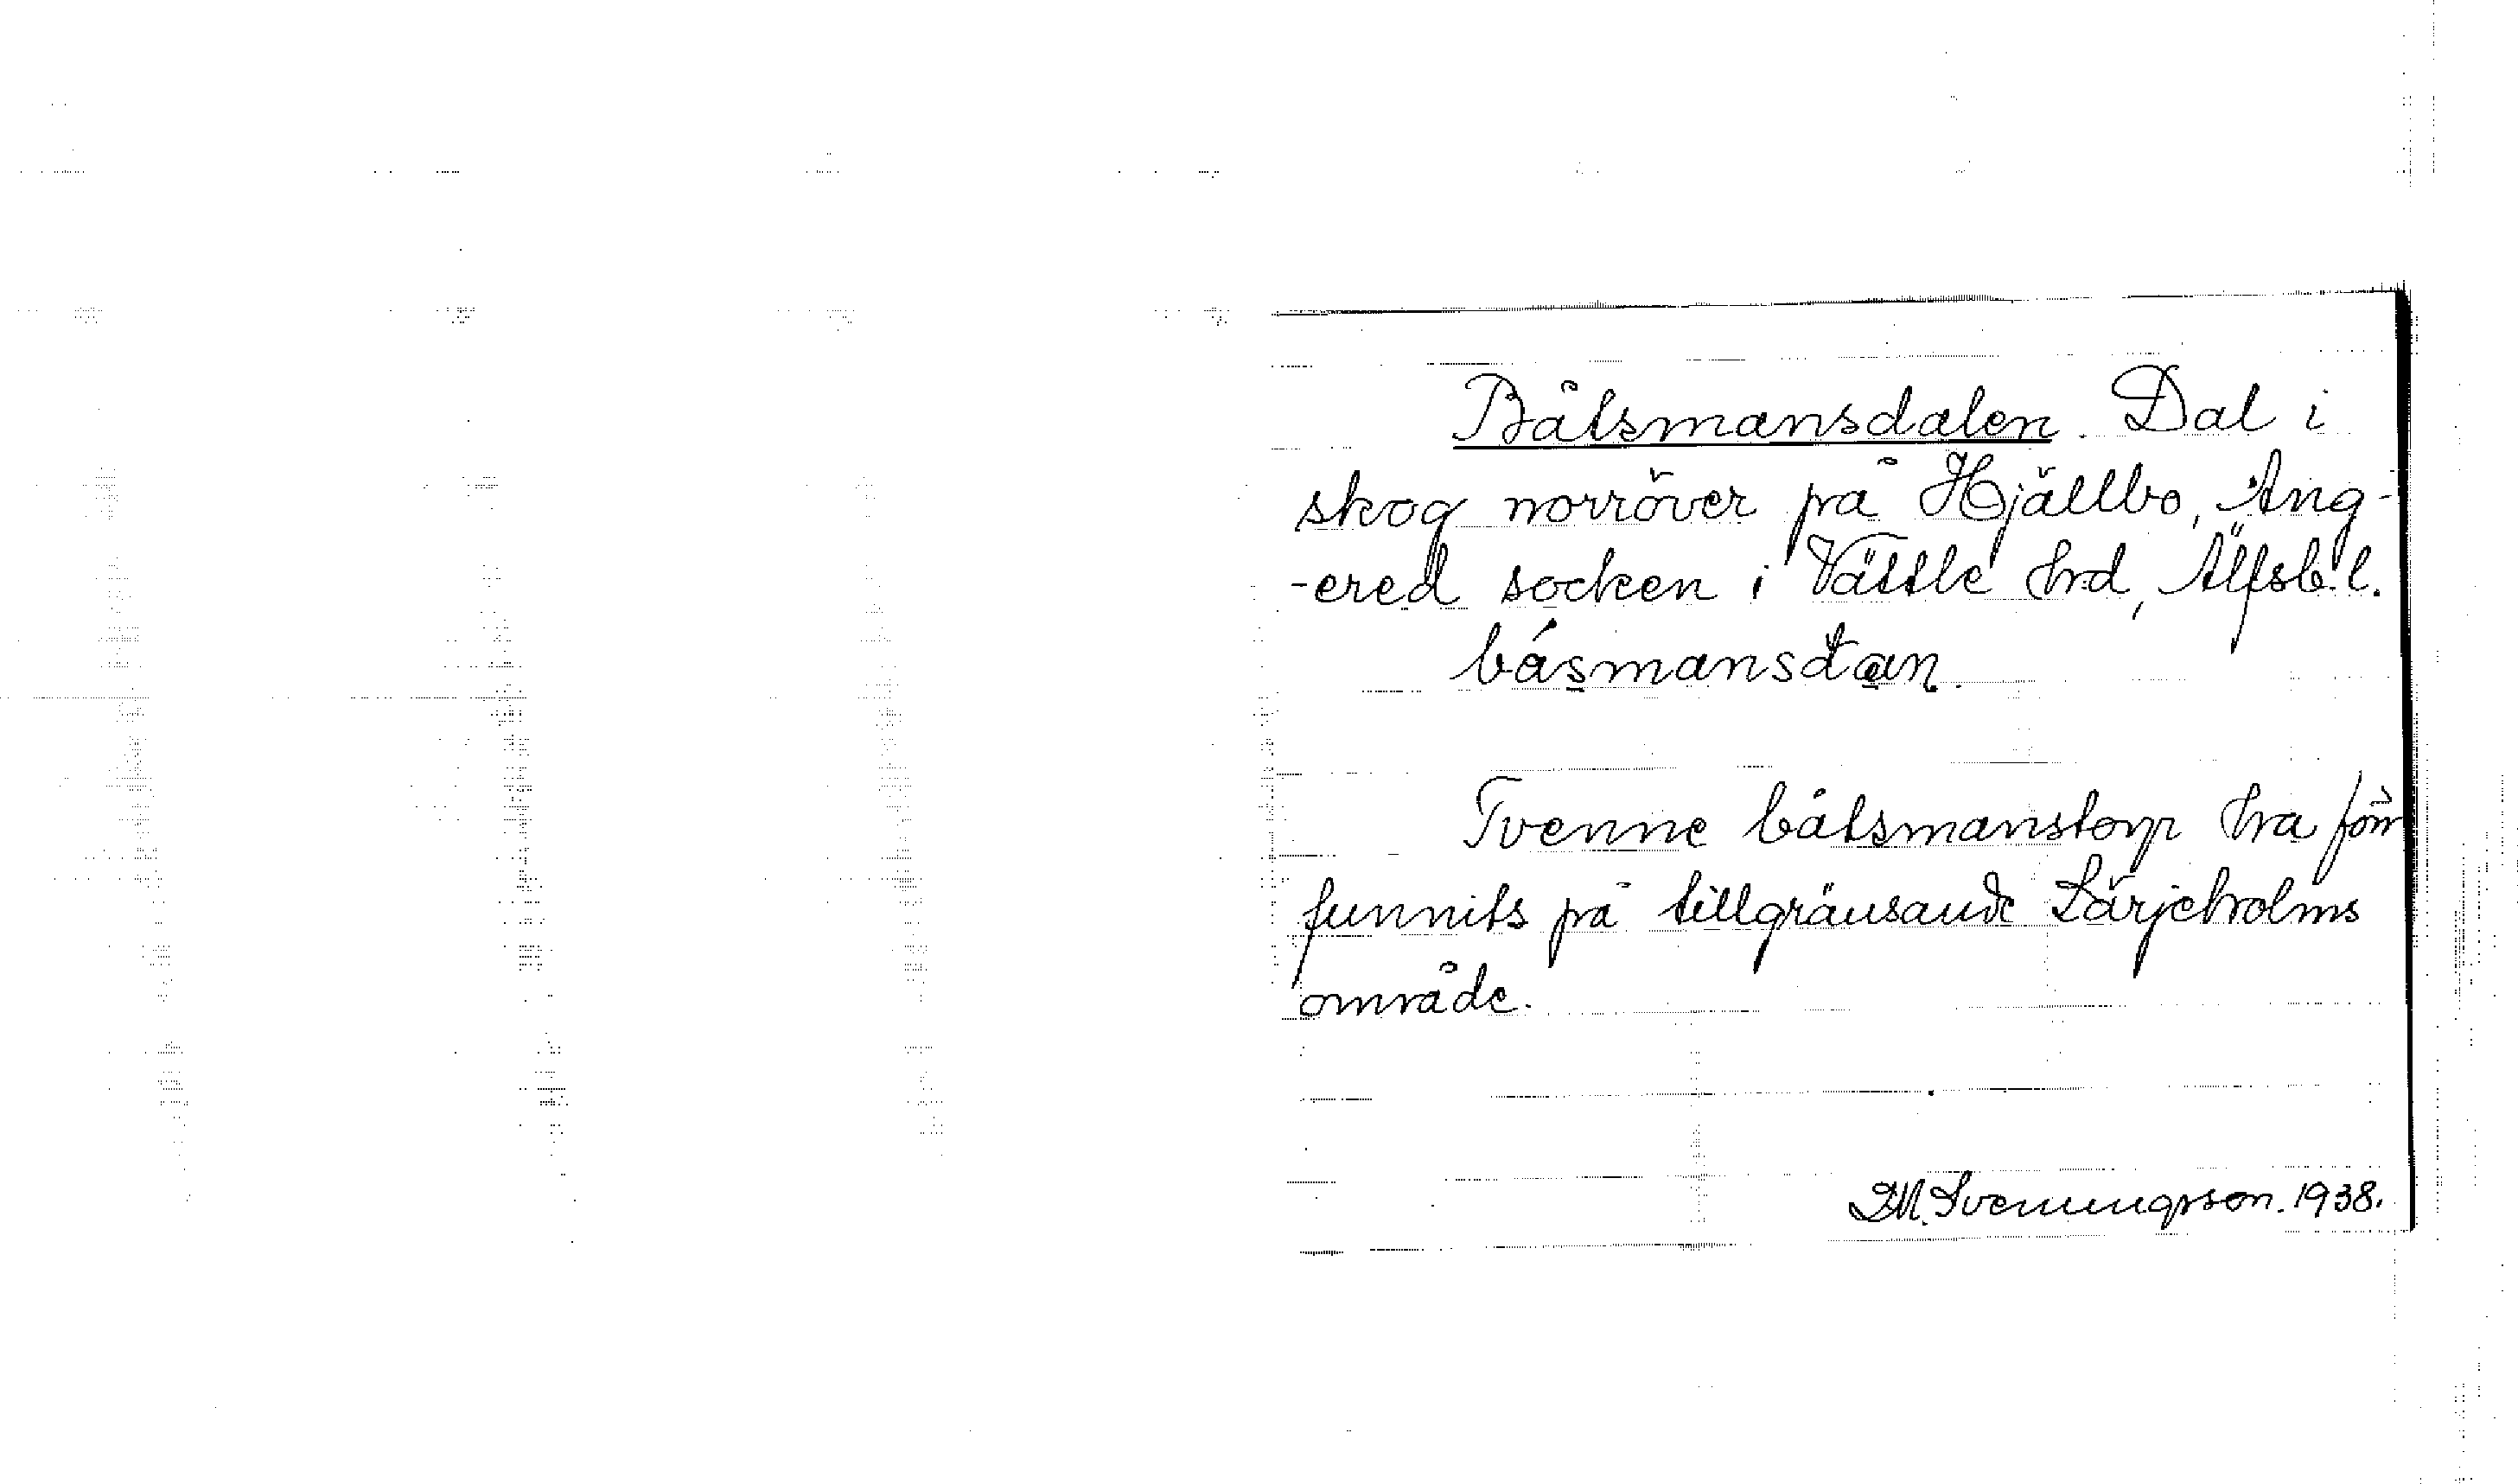 Båtsmansdalen. Dal i
skog norröver på Hjällbo, Ang-
-ered socken i Vättle hrd, Älfsb.l.
båsmansdan.
Tvenne båtsmanstorp ha förr
funnits på tillgränsande Lärjeholms
område.
Svenungsson. 1938.